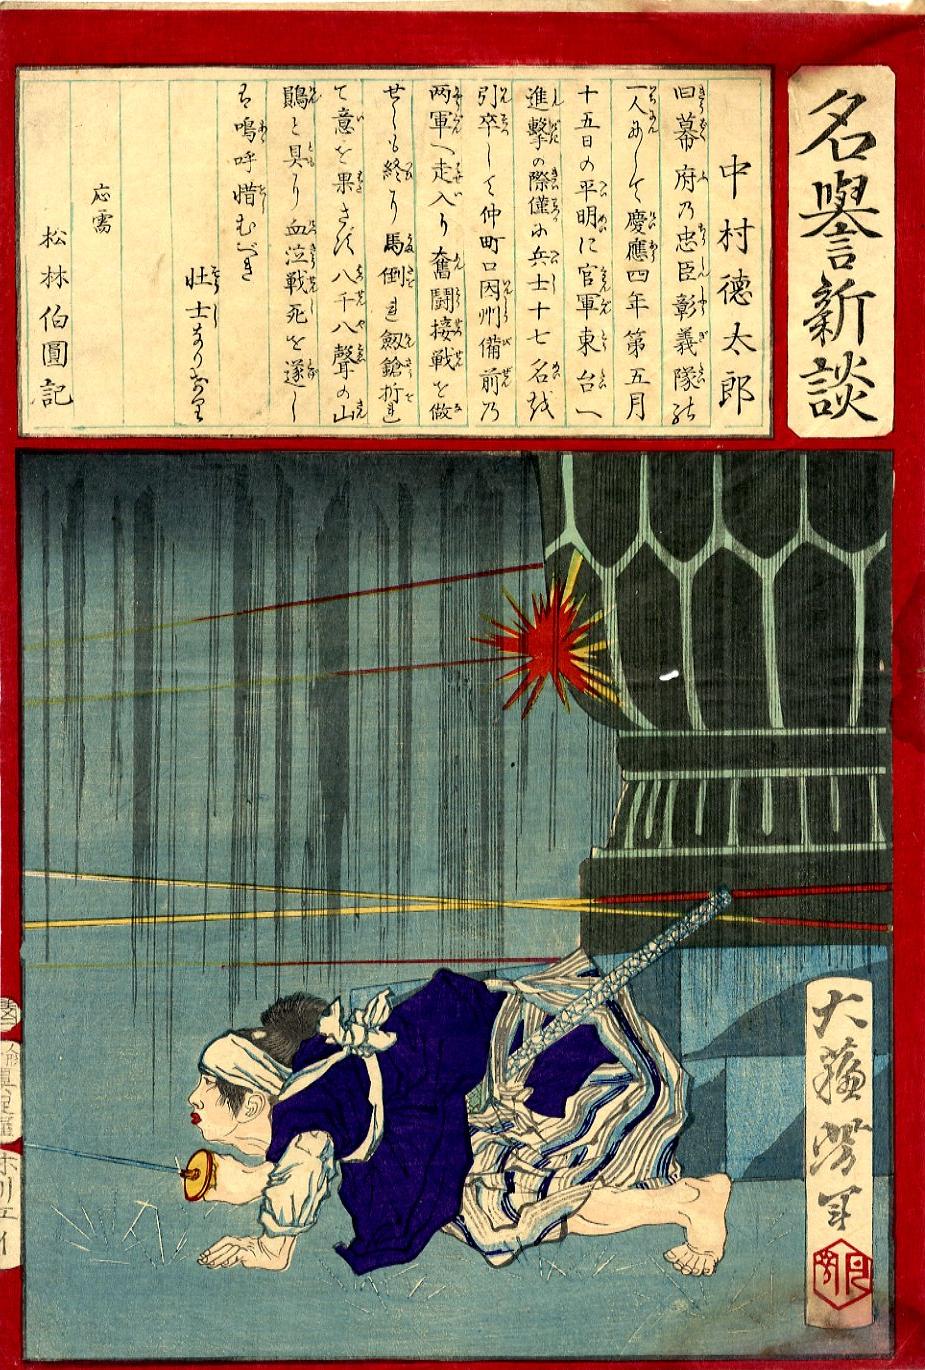 名誉新談
中村徳太郎
旧幕府乃忠臣彰義隊の
一人にして慶應四年第五月
十五日の平明に官軍東台へ
進撃の際僅に兵士十七名を
引卒して仲町口因州備前乃
両軍へ走入り奮闘接戦を做
せしも終に馬倒れ劔鎗折れ
て意を果さず八千八聲の山
鵑と具に血泣戦死を遂し
は嗚呼惜むべき
壮士なりけり
応需
松林伯圓記
大蘇芳年